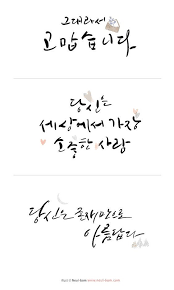 그대라서
고맙습니다.
당신은
세상에서 가장
소중한 사람
당신은 존재만으로
아름답다.